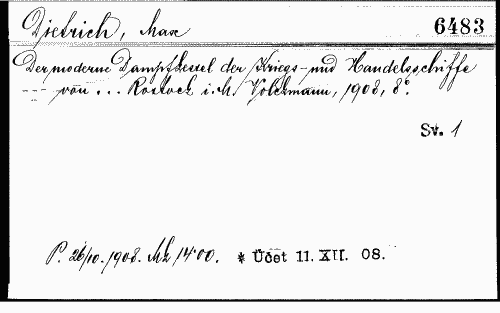 Dietrich, Max 6483
Der moderne Dampfkessel der Kriegs- und Handelsschiffe
--- von ... Rostock i. M. Volckmann, 1908, 8°.
Sv. 1
P. 26/10. 1908. Mk 14.00. * Účet 11. XII. 08.